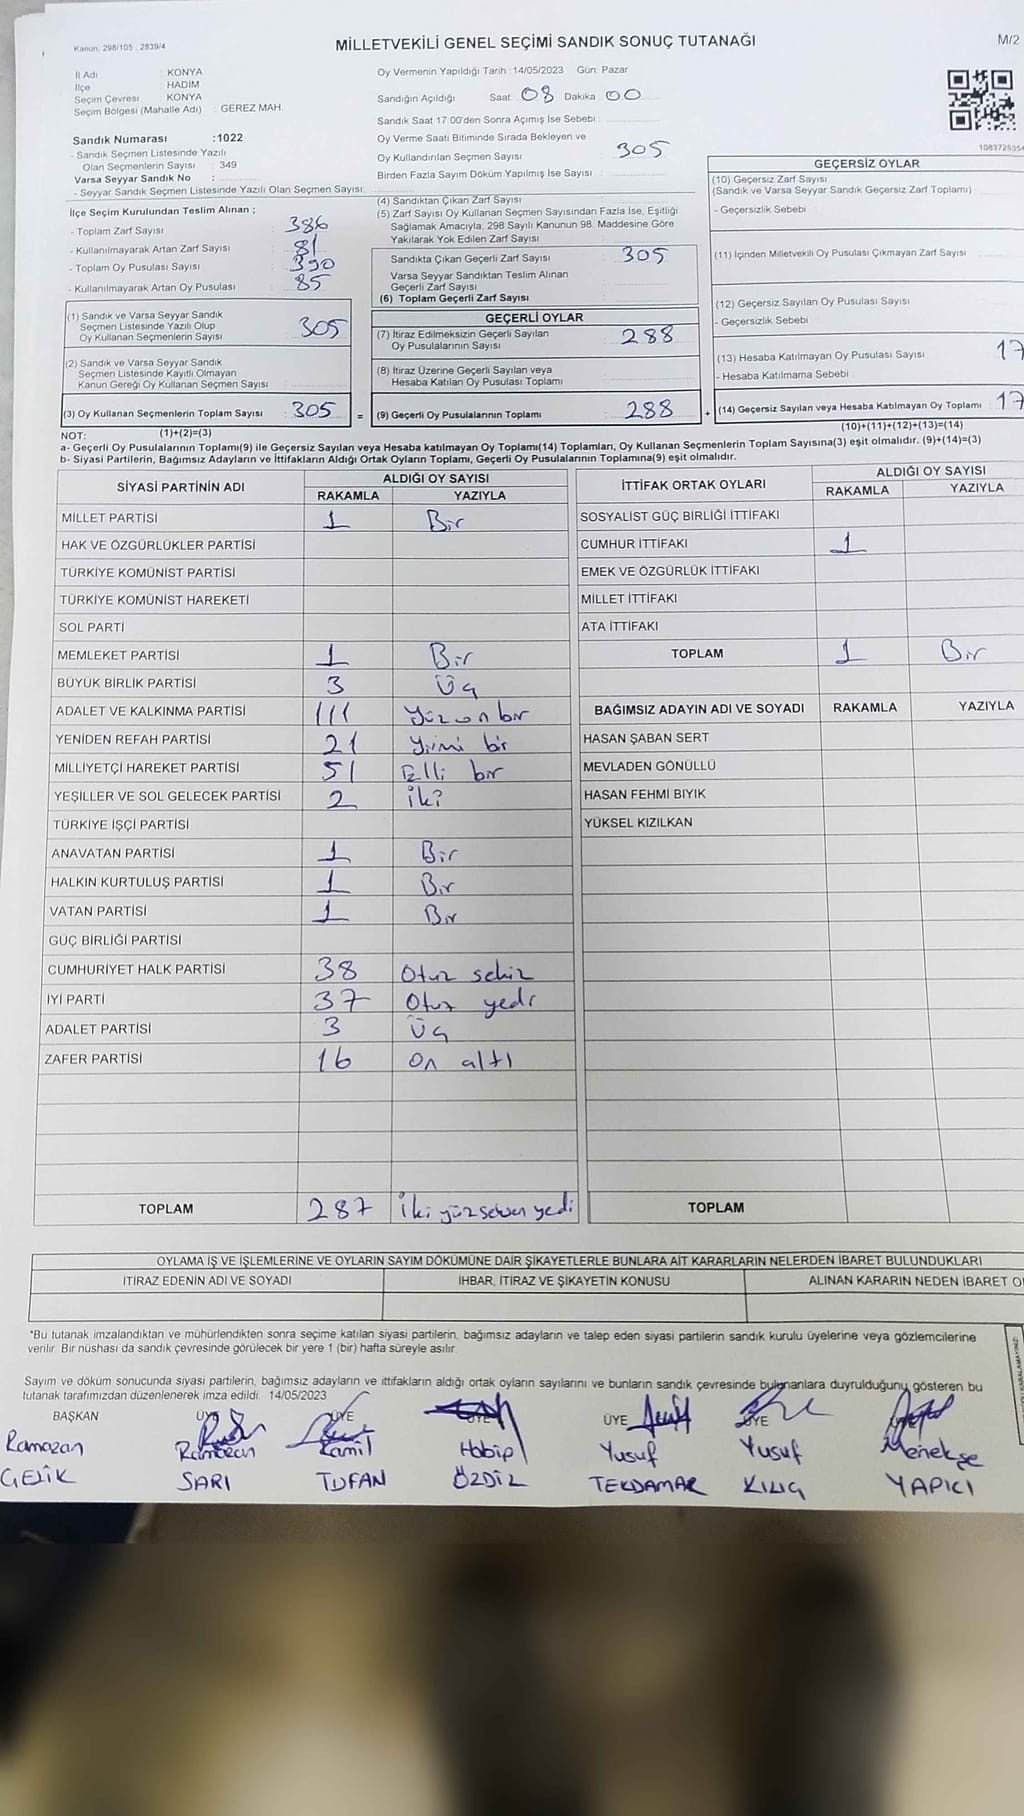 Kanun: 298/105, 2839/4
MİLLETVEKİLİ GENEL SEÇİMİ SANDIK SONUÇ TUTANAĞI
M/2
İl Adı : KONYA
İlçe : HADIM
Seçim Çevresi : KONYA
Seçim Bölgesi (Mahalle Adı) : GEREZ MAH.
Sandık Numarası : 1022
- Sandık Seçmen Listesinde Yazılı
Olan Seçmenlerin Sayısı : 349
Varsa Seyyar Sandık No :
- Seyyar Sandık Seçmen Listesinde Yazılı Olan Seçmen Sayısı:
Oy Vermenin Yapıldığı Tarih : 14/05/2023 Gün: Pazar
Sandığın Açıldığı Saat: 08 Dakika: 00
Sandık Saat 17:00'den Sonra Açımış İse Sebebi :
Oy Verme Saati Bitiminde Sırada Bekleyen ve
Oy Kullandırılan Seçmen Sayısı : 305
Birden Fazla Sayım Döküm Yapılmış İse Sayısı :
İlçe Seçim Kurulundan Teslim Alınan ;
- Toplam Zarf Sayısı : 386
- Kullanılmayarak Artan Zarf Sayısı : 81
- Toplam Oy Pusulası Sayısı : 390
- Kullanılmayarak Artan Oy Pusulası : 85
(1) Sandık ve Varsa Seyyar Sandık
Seçmen Listesinde Yazılı Olup
Oy Kullanan Seçmenlerin Sayısı : 305
(2) Sandık ve Varsa Seyyar Sandık
Seçmen Listesinde Kayıtlı Olmayan
Kanun Gereği Oy Kullanan Seçmen Sayısı :
(3) Oy Kullanan Seçmenlerin Toplam Sayısı : 305
(1)+(2)=(3)
(4) Sandıktan Çıkan Zarf Sayısı
(5) Zarf Sayısı Oy Kullanan Seçmen Sayısından Fazla İse, Eşitliği
Sağlamak Amacıyla; 298 Sayılı Kanunun 98. Maddesine Göre
Yakılarak Yok Edilen Zarf Sayısı :
Sandıkta Çıkan Geçerli Zarf Sayısı : 305
Varsa Seyyar Sandıktan Teslim Alınan
Geçerli Zarf Sayısı :
(6) Toplam Geçerli Zarf Sayısı :
GEÇERLİ OYLAR
(7) İtiraz Edilmeksizin Geçerli Sayılan
Oy Pusulalarının Sayısı : 288
(8) İtiraz Üzerine Geçerli Sayılan veya
Hesaba Katılan Oy Pusulası Toplamı :
= (9) Geçerli Oy Pusulalarının Toplamı : 288
GEÇERSİZ OYLAR
(10) Geçersiz Zarf Sayısı
(Sandık ve Varsa Seyyar Sandık Geçersiz Zarf Toplamı)
- Geçersizlik Sebebi :
(11) İçinden Milletvekili Oy Pusulası Çıkmayan Zarf Sayısı
(12) Geçersiz Sayılan Oy Pusulası Sayısı :
- Geçersizlik Sebebi :
(13) Hesaba Katılmayan Oy Pusulası Sayısı : 17
- Hesaba Katılmama Sebebi :
+ (14) Geçersiz Sayılan veya Hesaba Katılmayan Oy Toplamı : 17
(10)+(11)+(12)+(13)=(14)
NOT:
a- Geçerli Oy Pusulalarının Toplamı(9) ile Geçersiz Sayılan veya Hesaba katılmayan Oy Toplamı(14) Toplamları, Oy Kullanan Seçmenlerin Toplam Sayısına(3) eşit olmalıdır. (9)+(14)=(3)
b- Siyasi Partilerin, Bağımsız Adayların ve İttifakların Aldığı Ortak Oyların Toplamı, Geçerli Oy Pusulalarının Toplamına(9) eşit olmalıdır.
SİYASİ PARTİNİN ADI ALDIĞI OY SAYISI
RAKAMLA YAZIYLA
MİLLET PARTİSİ 1 Bir
HAK VE ÖZGÜRLÜKLER PARTİSİ
TÜRKİYE KOMÜNİST PARTİSİ
TÜRKİYE KOMÜNİST HAREKETİ
SOL PARTİ
MEMLEKET PARTİSİ 1 Bir
BÜYÜK BİRLİK PARTİSİ 3 Üç
ADALET VE KALKINMA PARTİSİ 111 Yüz on bir
YENİDEN REFAH PARTİSİ 21 Yirmi bir
MİLLİYETÇİ HAREKET PARTİSİ 51 Elli bir
YEŞİLLER VE SOL GELECEK PARTİSİ 2 İki
TÜRKİYE İŞÇİ PARTİSİ
ANAVATAN PARTİSİ 1 Bir
HALKIN KURTULUŞ PARTİSİ 1 Bir
VATAN PARTİSİ 1 Bir
GÜÇ BİRLİĞİ PARTİSİ
CUMHURİYET HALK PARTİSİ 38 Otuz sekiz
İYİ PARTİ 37 Otuz yedi
ADALET PARTİSİ 3 Üç
ZAFER PARTİSİ 16 On altı
TOPLAM 287 İki yüz seksen yedi
İTTİFAK ORTAK OYLARI ALDIĞI OY SAYISI
RAKAMLA YAZIYLA
SOSYALİST GÜÇ BİRLİĞİ İTTİFAKI
CUMHUR İTTİFAKI 1
EMEK VE ÖZGÜRLÜK İTTİFAKI
MİLLET İTTİFAKI
ATA İTTİFAKI
TOPLAM 1 Bir
BAĞIMSIZ ADAYIN ADI VE SOYADI RAKAMLA YAZIYLA
HASAN ŞABAN SERT
MEVLADEN GÖNÜLLÜ
HASAN FEHMİ BIYIK
YÜKSEL KIZILKAN
TOPLAM
OYLAMA İŞ VE İŞLEMLERİNE VE OYLARIN SAYIM DÖKÜMÜNE DAİR ŞİKAYETLERLE BUNLARA AİT KARARLARIN NELERDEN İBARET BULUNDUKLARI
İTİRAZ EDENİN ADI VE SOYADI İHBAR, İTİRAZ VE ŞİKAYETİN KONUSU ALINAN KARARIN NEDEN İBARET O
*Bu tutanak imzalandıktan ve mühürlendikten sonra seçime katılan siyasi partilerin, bağımsız adayların ve talep eden siyasi partilerin sandık kurulu üyelerine veya gözlemcilerine
verilir. Bir nüshası da sandık çevresinde görülecek bir yere 1 (bir) hafta süreyle asılır.
Sayım ve döküm sonucunda siyasi partilerin, bağımsız adayların ve ittifakların aldığı ortak oyların sayılarını ve bunların sandık çevresinde bulunanlara duyrulduğunu gösteren bu
tutanak tarafımızdan düzenlenerek imza edildi. 14/05/2023
BAŞKAN ÜYE ÜYE ÜYE ÜYE ÜYE
Ramazan Ramazan Kamil Habip Yusuf Yusuf Menekşe
ÇELİK SARI TUFAN ÖZDİL TEKDAMAR KILIÇ YAPICI